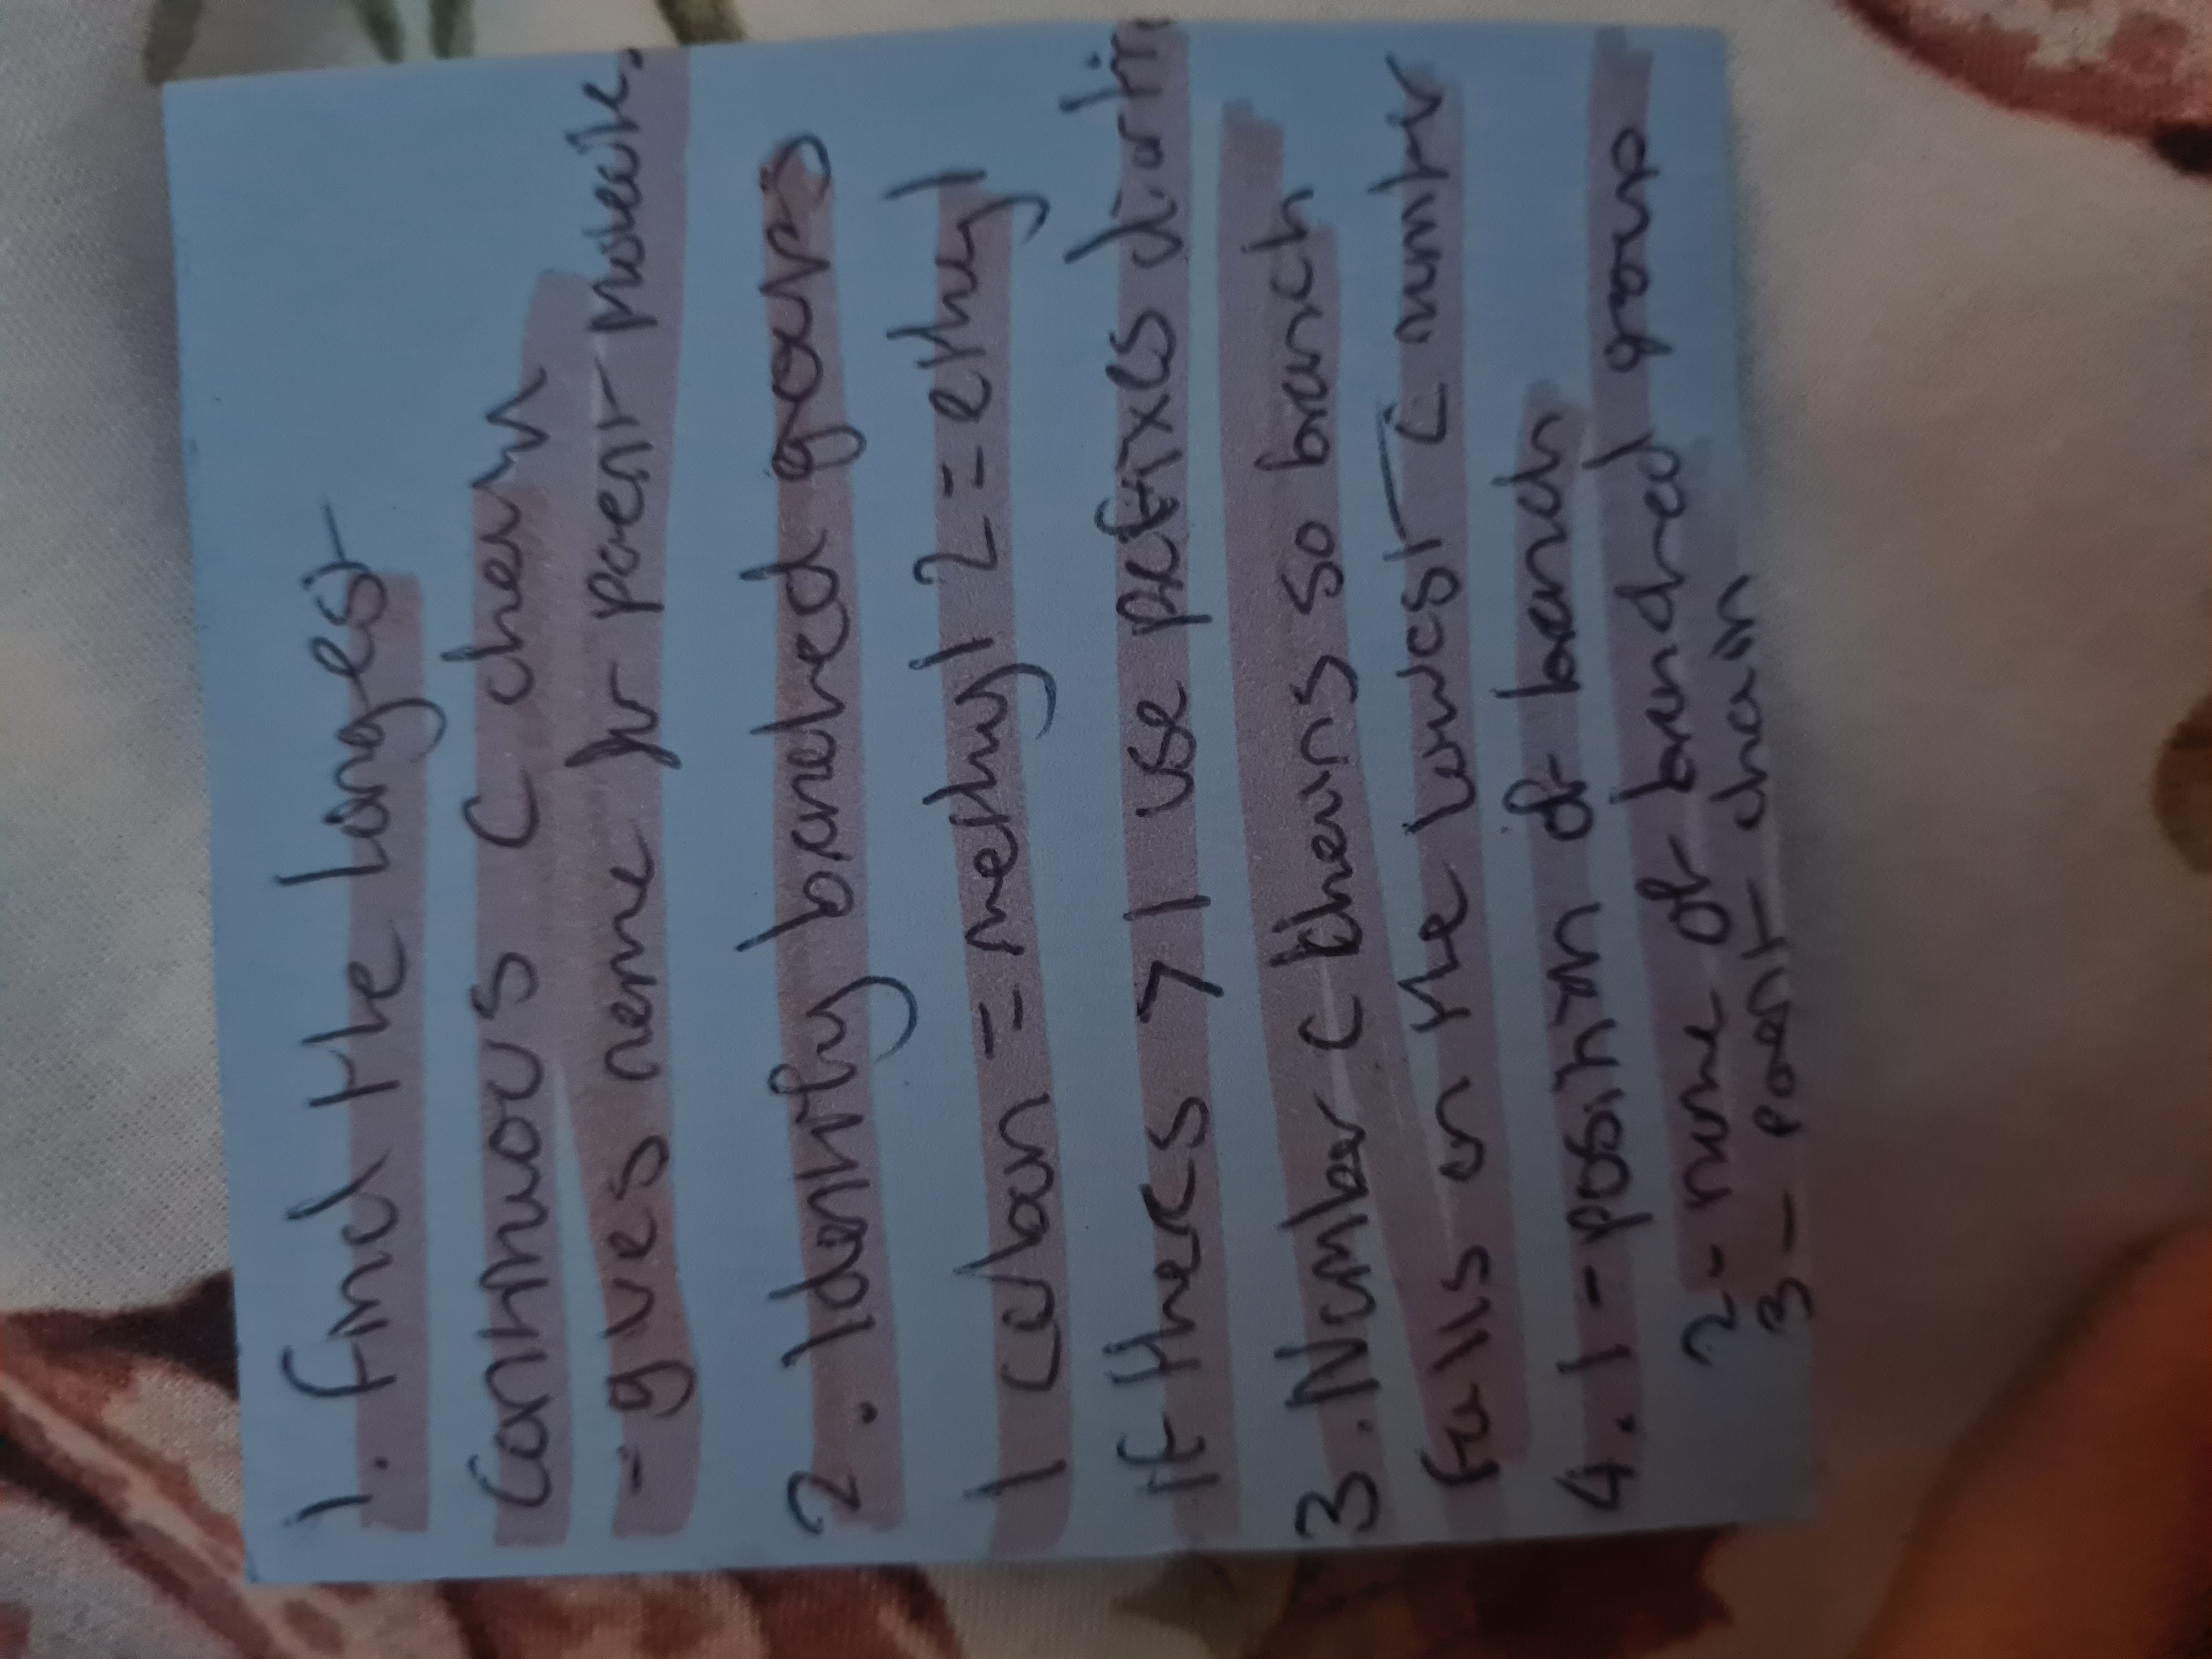 1. find the longest
continuous C chain
- gives name for parent molecule.
2. Identify branched groups
1 carbon = methyl 2 = ethyl
If theres > 1 use prefixes di or tri
3. Number C chains so branch
falls on the lowest C number
4. 1 - position of branch
2 - name of branched group
3 - parent chain